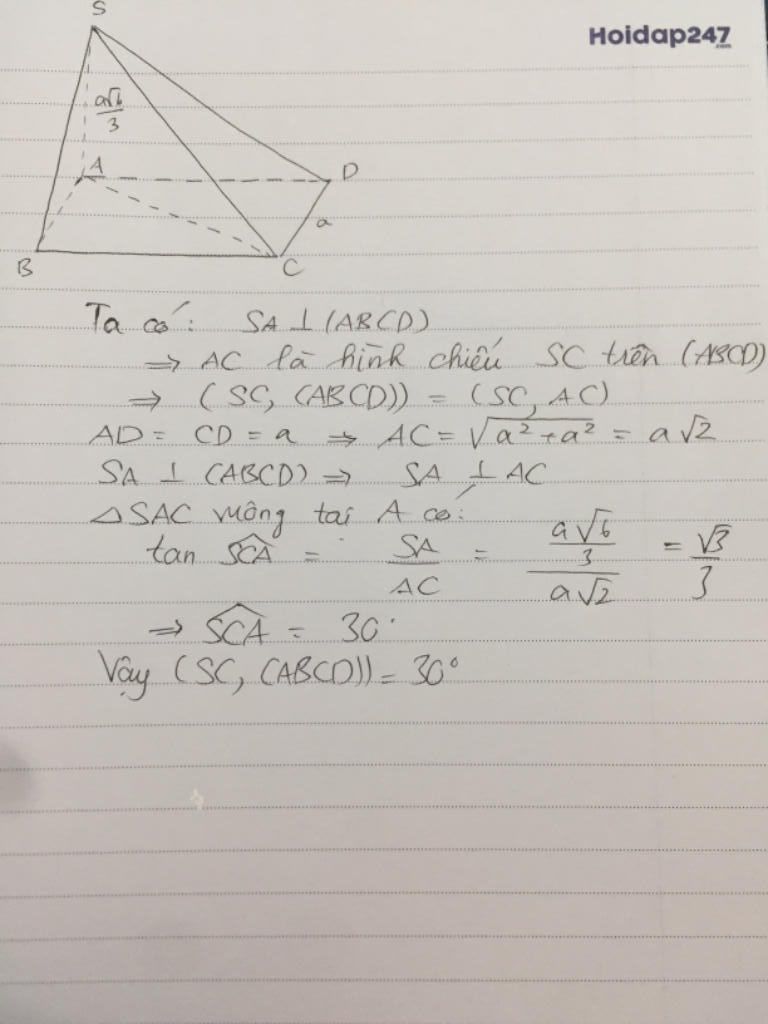 Hoidap247
.com
S
a√6/3
A
D
a
B
C
Ta có: SA ⊥ (ABCD)
⇒ AC là hình chiếu SC trên (ABCD)
⇒ (SC, (ABCD)) = (SC, AC)
AD = CD = a ⇒ AC = √(a² + a²) = a√2
SA ⊥ (ABCD) ⇒ SA ⊥ AC
△SAC vuông tại A có:
tan SCA = SA/AC = (a√6/3)/(a√2) = √3/3
⇒ SCA = 30°
Vậy (SC, (ABCD)) = 30°